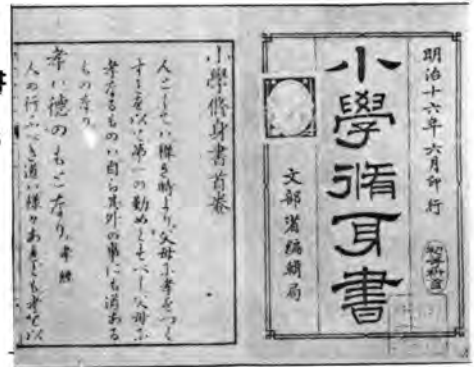 明治十六年六月印行
小學脩身書
文部省編輯局
小學修身書首巻
人としてハ穉き時より、父母に孝をつく
すを以て第一の勤めとすべし、父母に
孝なるものハ自ら其外の事にも漏ある
ものなり
孝ハ徳のもとなり、孝經
人の行ふべき道ハ様々あれども孝を以